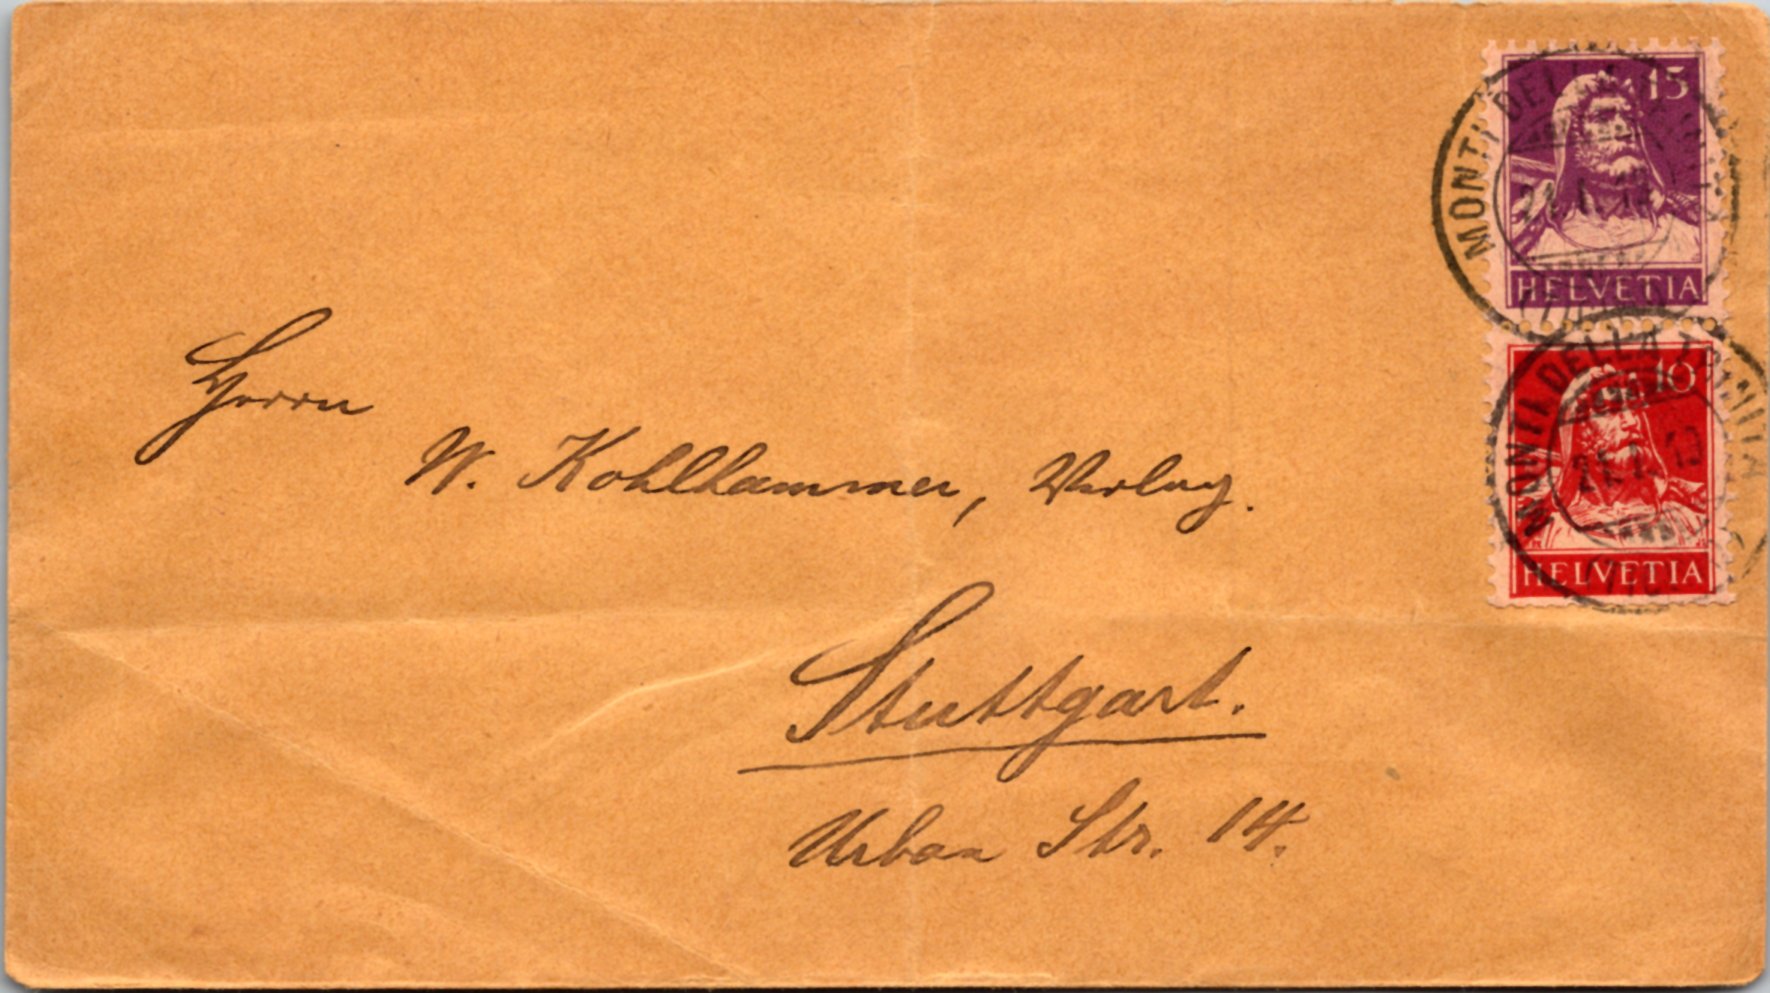 15
HELVETIA
MONTI DELLA TRINITA
10
HELVETIA
Herrn
W. Kohlhammer, Verlag.
Stuttgart.
Urban Str. 14.